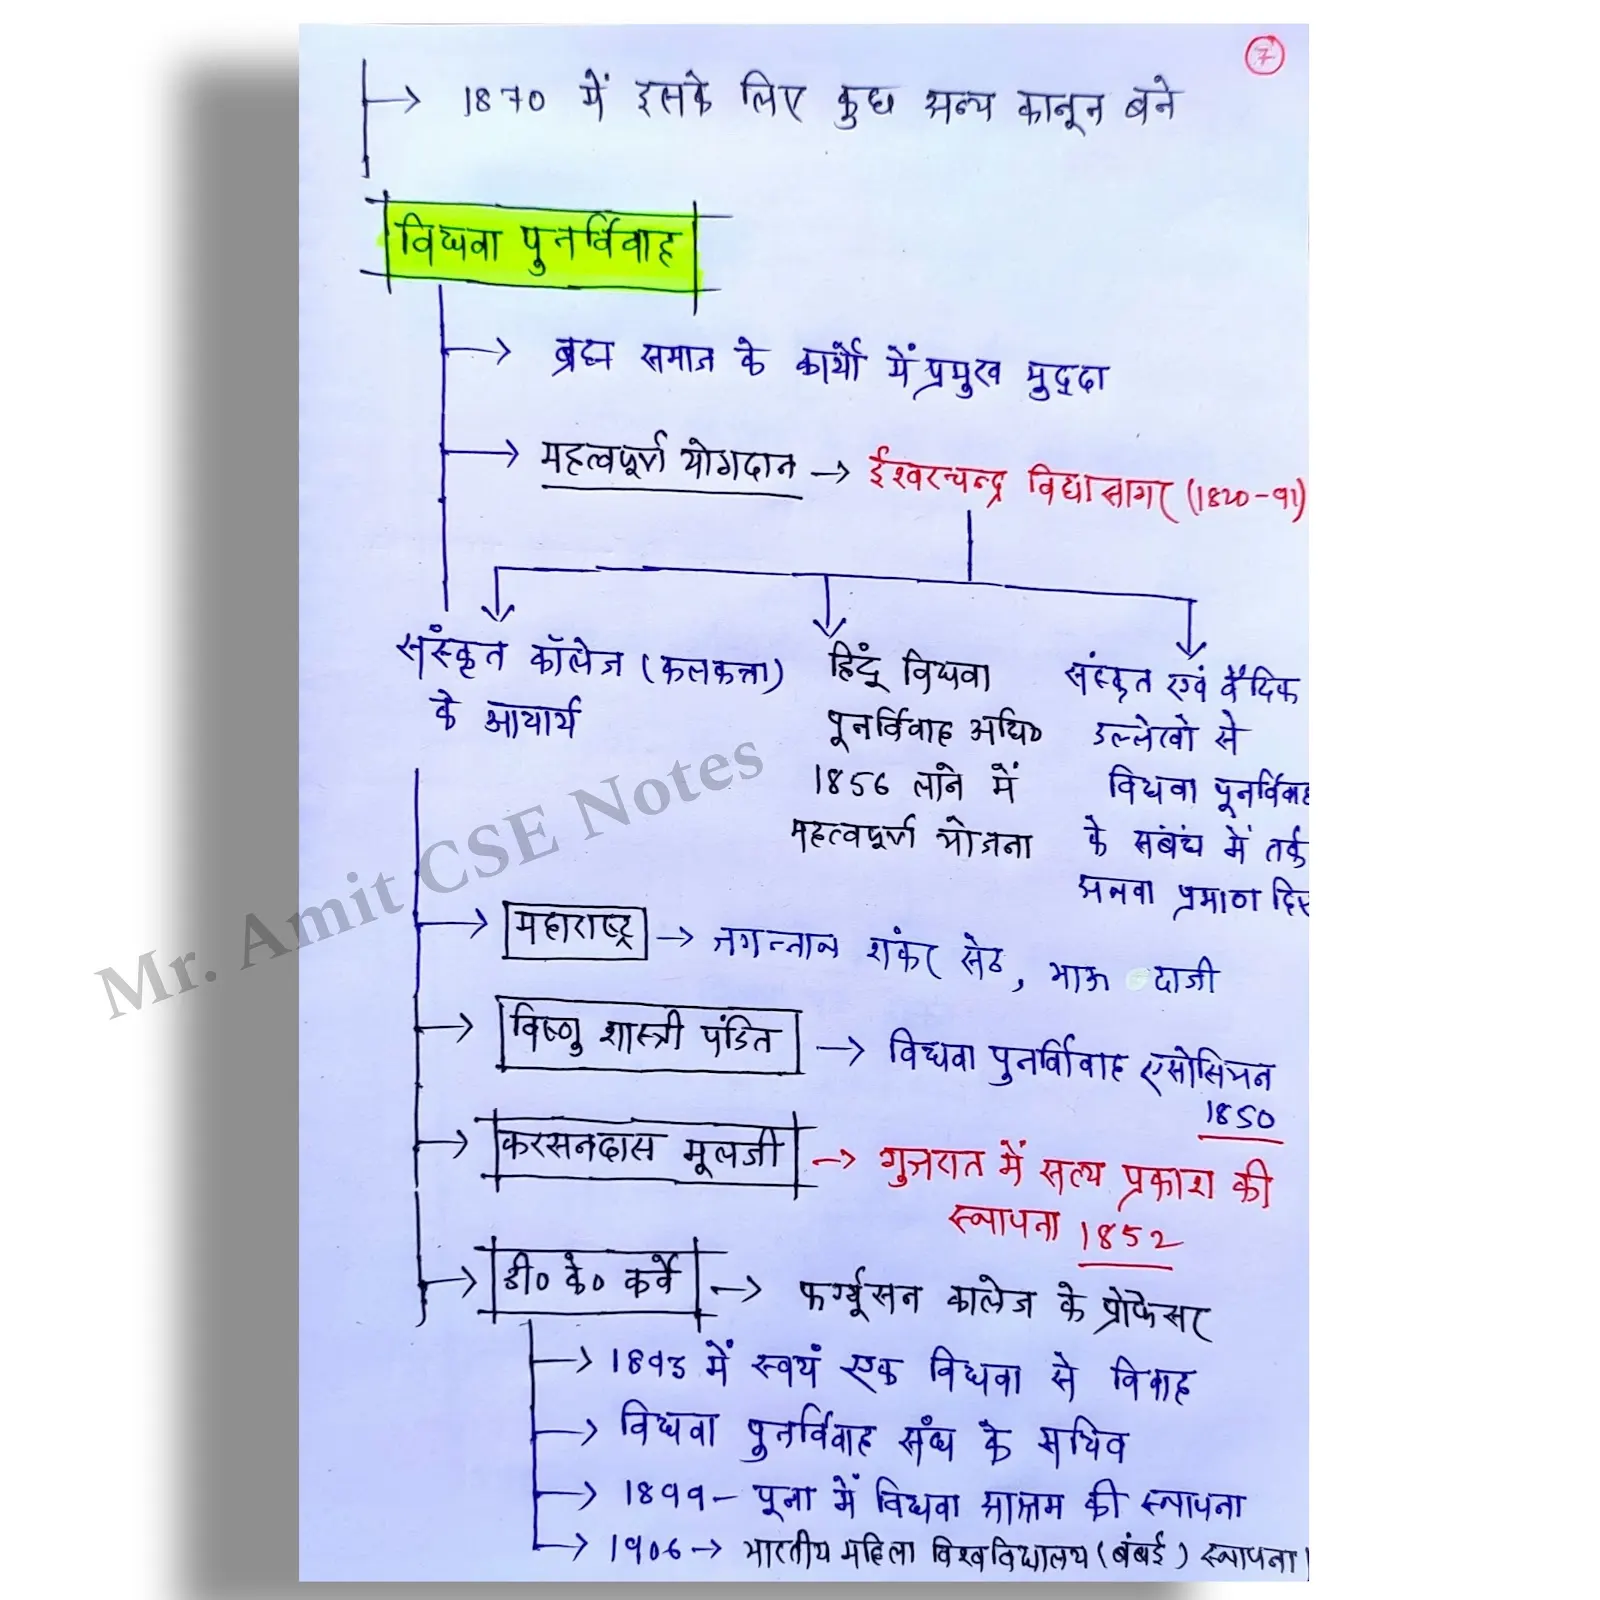 7
1870 में इसके लिए कुछ अन्य कानून बने
विधवा पुनर्विवाह
ब्रह्म समाज के कार्यों में प्रमुख मुद्दा
महत्वपूर्ण योगदान → ईश्वरचन्द्र विद्यासागर (1820-91)
संस्कृत कॉलेज (कलकत्ता)
के आचार्य
हिंदू विधवा
पुनर्विवाह अधि०
1856 लाने में
महत्वपूर्ण योजना
संस्कृत एवं वैदिक
उल्लेखो से
विधवा पुनर्विवाह
के संबंध में तर्क
अथवा प्रमाण दिए
महाराष्ट्र → जगन्नाथ शंकर सेठ, भाऊ दाजी
विष्णु शास्त्री पंडित → विधवा पुनर्विवाह एसोसिएशन
1850
करसनदास मूलजी → गुजरात में सत्य प्रकाश की
स्थापना 1852
डी० के० कर्वे → फर्ग्यूसन कालेज के प्रोफेसर
1893 में स्वयं एक विधवा से विवाह
विधवा पुनर्विवाह संघ के सचिव
1899- पूना में विधवा आश्रम की स्थापना
1906 → भारतीय महिला विश्वविद्यालय (बंबई) स्थापना।
Mr. Amit CSE Notes